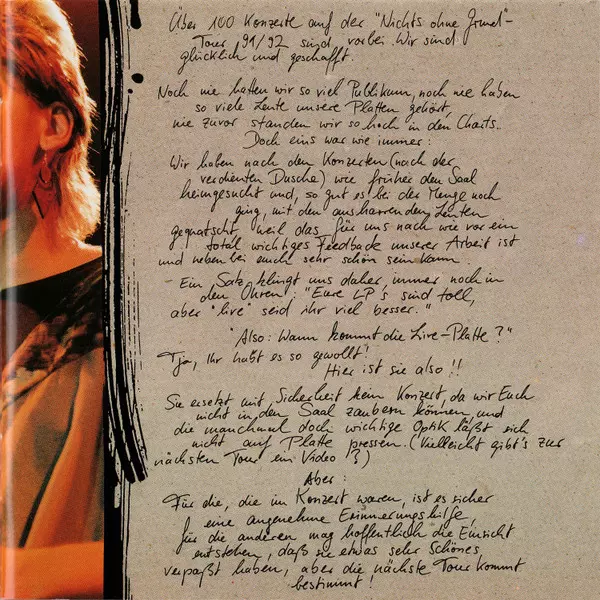 Über 100 Konzerte auf der "Nichts ohne Grund"-
Tour 91/92 sind vorbei. Wir sind
glücklich und geschafft.
Noch nie hatten wir so viel Publikum, noch nie haben
so viele Leute unsere Platten gehört,
nie zuvor standen wir so hoch in den Charts.
Doch eins war wie immer:
Wir haben nach den Konzerten (nach der
verdienten Dusche) wie früher den Saal
heimgesucht und, so gut es bei der Menge noch
ging, mit den ausharrenden Leuten
gequatscht, weil das für uns nach wie vor ein
total wichtiges Feedback unserer Arbeit ist
und neben bei auch sehr schön sein kann.
- Ein Satz klingt uns daher immer noch in
den Ohren: "Eure LP's sind toll,
aber "live" seid ihr viel besser."
"Also: Wann kommt die Live-Platte?"
Tja, Ihr habt es so gewollt!
Hier ist sie also!!
Sie ersetzt mit Sicherheit kein Konzert, da wir Euch
nicht in den Saal zaubern können, und
die manchmal doch wichtige Optik läßt sich
nicht auf Platte pressen. (Vielleicht gibt's zur
nächsten Tour ein Video?)
Aber:
Für die, die im Konzert waren, ist es sicher
eine angenehme Erinnerungshilfe,
für die anderen mag hoffentlich die Einsicht
entstehen, daß sie etwas sehr Schönes
verpaßt haben, aber die nächste Tour kommt
bestimmt!